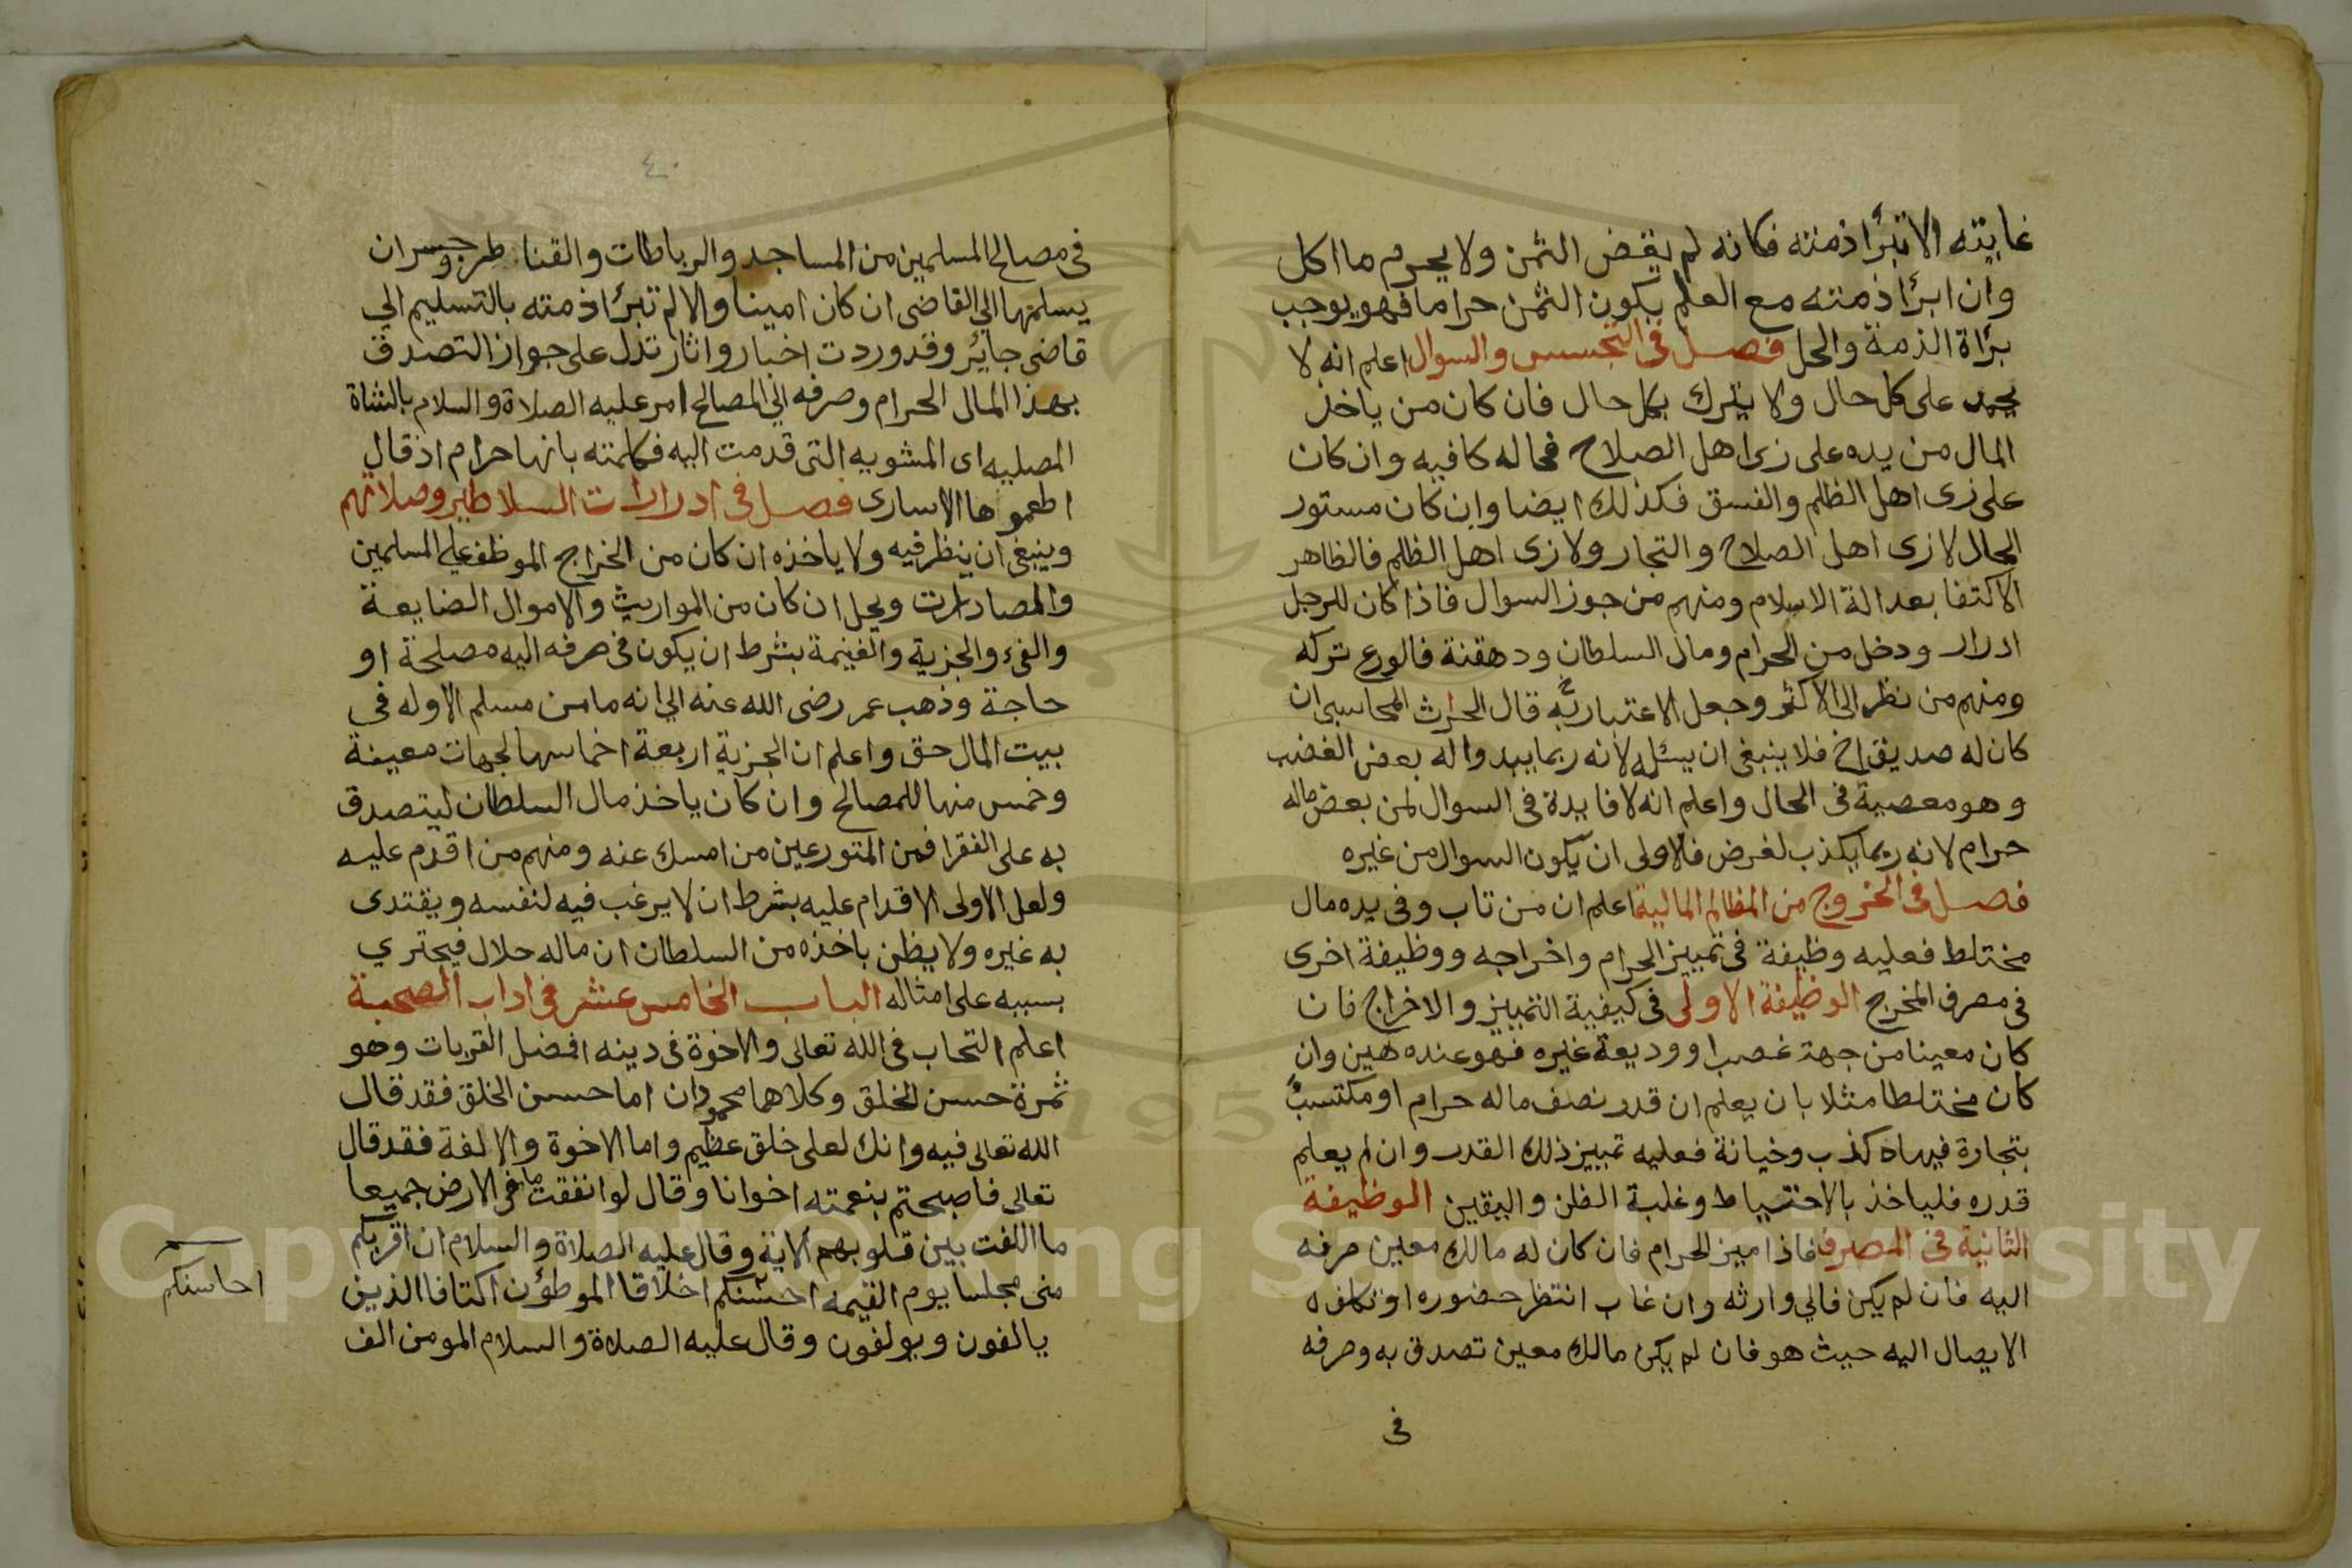 غايته الا تبرأ ذمته فكانه لم يقض الثمن ولا يحرم ما اكل
وان ابرأ ذمته مع العلم بكون الثمن حراما فهو يوجب
برأة الذمة والحل فصل في التجسس والسوال اعلم انه لا
على كل حال ولا يترك بكل حال فان كان من ياخذ
المال من يده على زي اهل الصلاح فحاله كافيه وان كان
على زي اهل الظلم والفسق فكذلك ايضا وان كان مستور
الحال لا زي اهل الصلاح والتجار ولا زي اهل الظلم فالظاهر
الاكتفا بعدالة الاسلام ومنهم من جوز السوال فاذا كان للرجل
ادرار ودخل من الحرام ومال السلطان ودهقنة فالورع تركه
ومنهم من نظر الى الاكثر وجعل الاعتبار به قال الحرث المحاسبي ان
كان له صديق اخ فلا ينبغي ان يسئله لانه ربما يبدوا له بعض الغضب
وهو معصية في الحال واعلم انه لا فايدة في السوال لمن بعض ماله
حرام لانه ربما يكذب لغرض فالاولى ان يكون السوال من غيره
فصل في الخروج من المظالم المالية اعلم ان من تاب وفي يده مال
مختلط فعليه وظيفة في تمييز الحرام واخراجه ووظيفة اخرى
في مصرف المخرج الوظيفة الاولى في كيفية التمييز والاخراج فان
كان معينا من جهة غصب او وديعة غيره فهو عنده هين وان
كان مختلطا مثلا بان يعلم ان قدر نصف ماله حرام او مكتسب
بتجارة فيهاه كذب وخيانة فعليه تمييز ذلك القدر وان لم يعلم
قدره فلياخذ بالاحتياط وغلبة الظن واليقين الوظيفة
الثانية في المصرف فاذا ميز الحرام فان كان له مالك معين صرفه
اليه فان لم يكن فالي وارثه وان غاب انتظر حضوره او تكلفه
الايصال اليه حيث هو فان لم يكن مالك معين تصدق به وصرفه
في
٤٠
في مصالح المسلمين من المساجد والرباطات والقناطر وجسر ان
يسلمها الي القاضي ان كان امينا والا لم تبرأ ذمته بالتسليم الي
قاضي جايئر وقد وردت اخبار واثار تدل على جواز التصدق
بهذا المال الحرام وصرفه الي المصالح امر عليه الصلاة والسلام بالشاة
المصليه اي المشويه التي قدمت اليه فكلمته بانها حرام اذ قال
اطعموها الاسارى فصل في ادرارات السلاطين وصلاتهم
وينبغي ان ينظر فيه ولا ياخذه ان كان من الخراج الموظف علي المسلمين
والمصادارت ويحل ان كان من المواريث والاموال الضايعة
والفيء والجزية والغنيمة بشرط ان يكون في صرفه اليه مصلحة او
حاجة وذهب عمر رضي الله عنه الي انه ما من مسلم الا وله في
بيت المال حق واعلم ان الجزية اربعة اخماسها لجهات معينة
وخمس منها للمصالح وان كان ياخذ مال السلطان ليتصدق
به على الفقرا فمن المتورعين من امسك عنه ومنهم من اقدم عليه
ولعل الاولى الاقدام عليه بشرط ان لا يرغب فيه لنفسه ويقتدى
به غيره ولا يظن باخذه من السلطان ان ماله حلال فيجتري
بسببه على امثاله الباب الخامس عشر في اداب الصحبة
اعلم التحاب في الله تعالى والاخوة في دينه افضل القربات وهو
ثمرة حسن الخلق وكلاهما محمودان اما حسن الخلق فقد قال
الله تعالى فيه وانك لعلى خلق عظيم واما الاخوة والالفة فقد قال
تعالى فاصبحتم بنعمته اخوانا وقال لو انفقت ما في الارض جميعا
ما اللفت بين قلوبهم الاية وقال عليه الصلاة والسلام ان اقربكم
مني مجلسا يوم القيمه احسنكم اخلاقا الموطؤن اكتافا الذين
احاسنكم
يالفون ويولفون وقال عليه الصلاة والسلام المومن الف